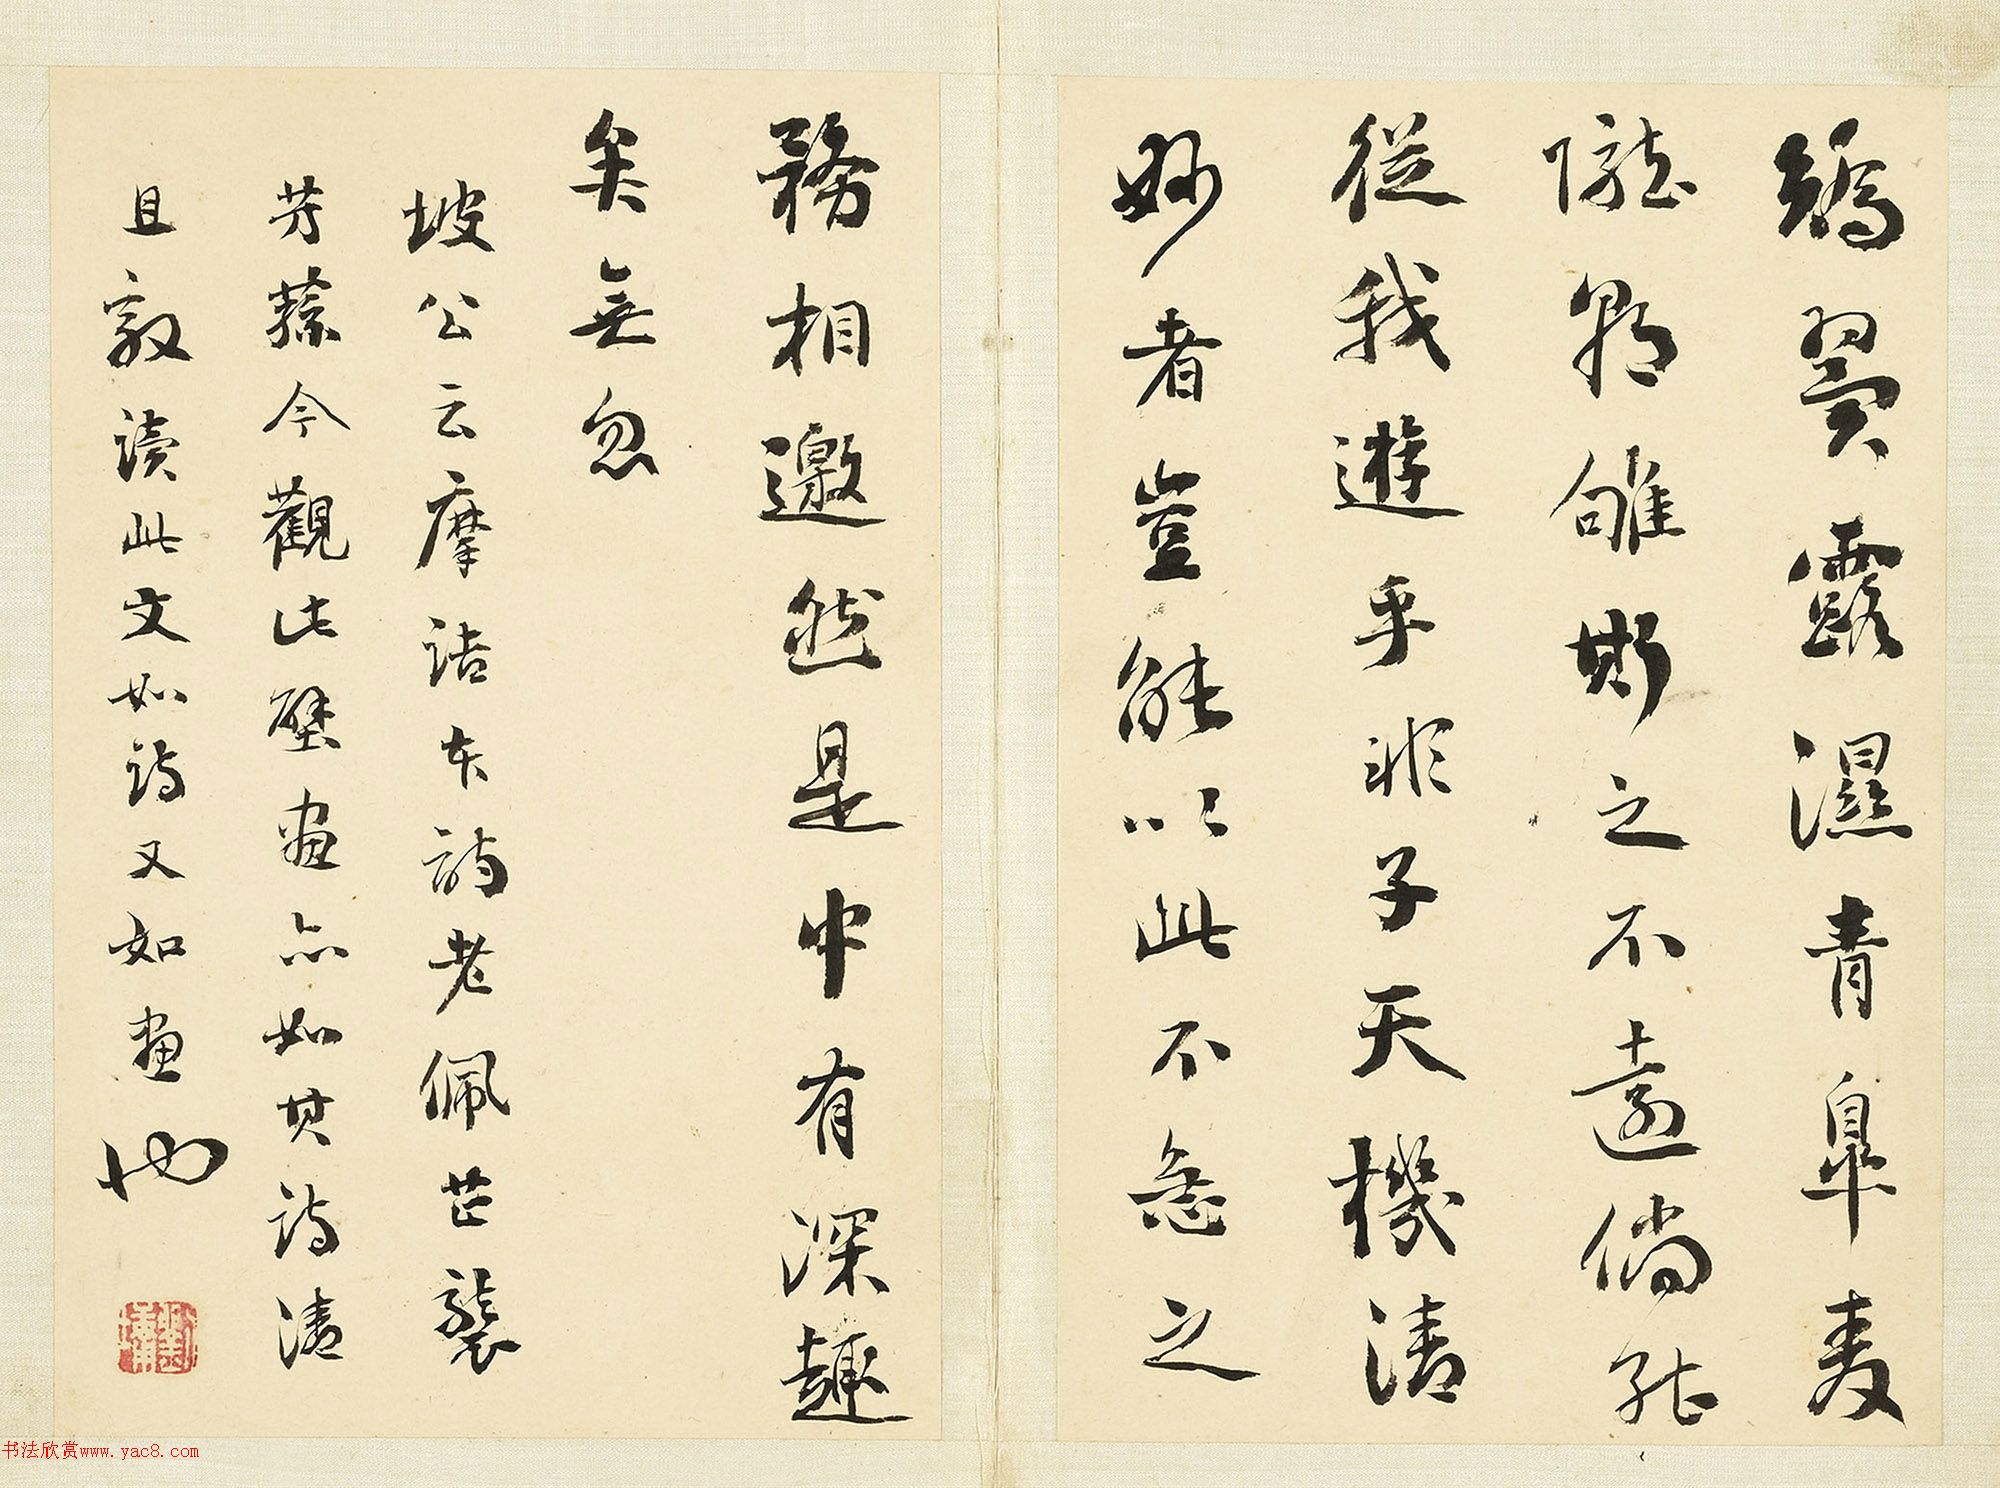 矯翼露濕青皋麥
隴朝雊斯之不遠倘能
從我遊乎非子天機清
妙者豈能以此不急之
務相邀然是中有深趣
矣無忽
坡公云摩詰本詩老佩芷襲
芳蓀今觀此壁畫亦如其詩清
且敦讀此文如詩又如畫也
书法欣赏www.yac8.com